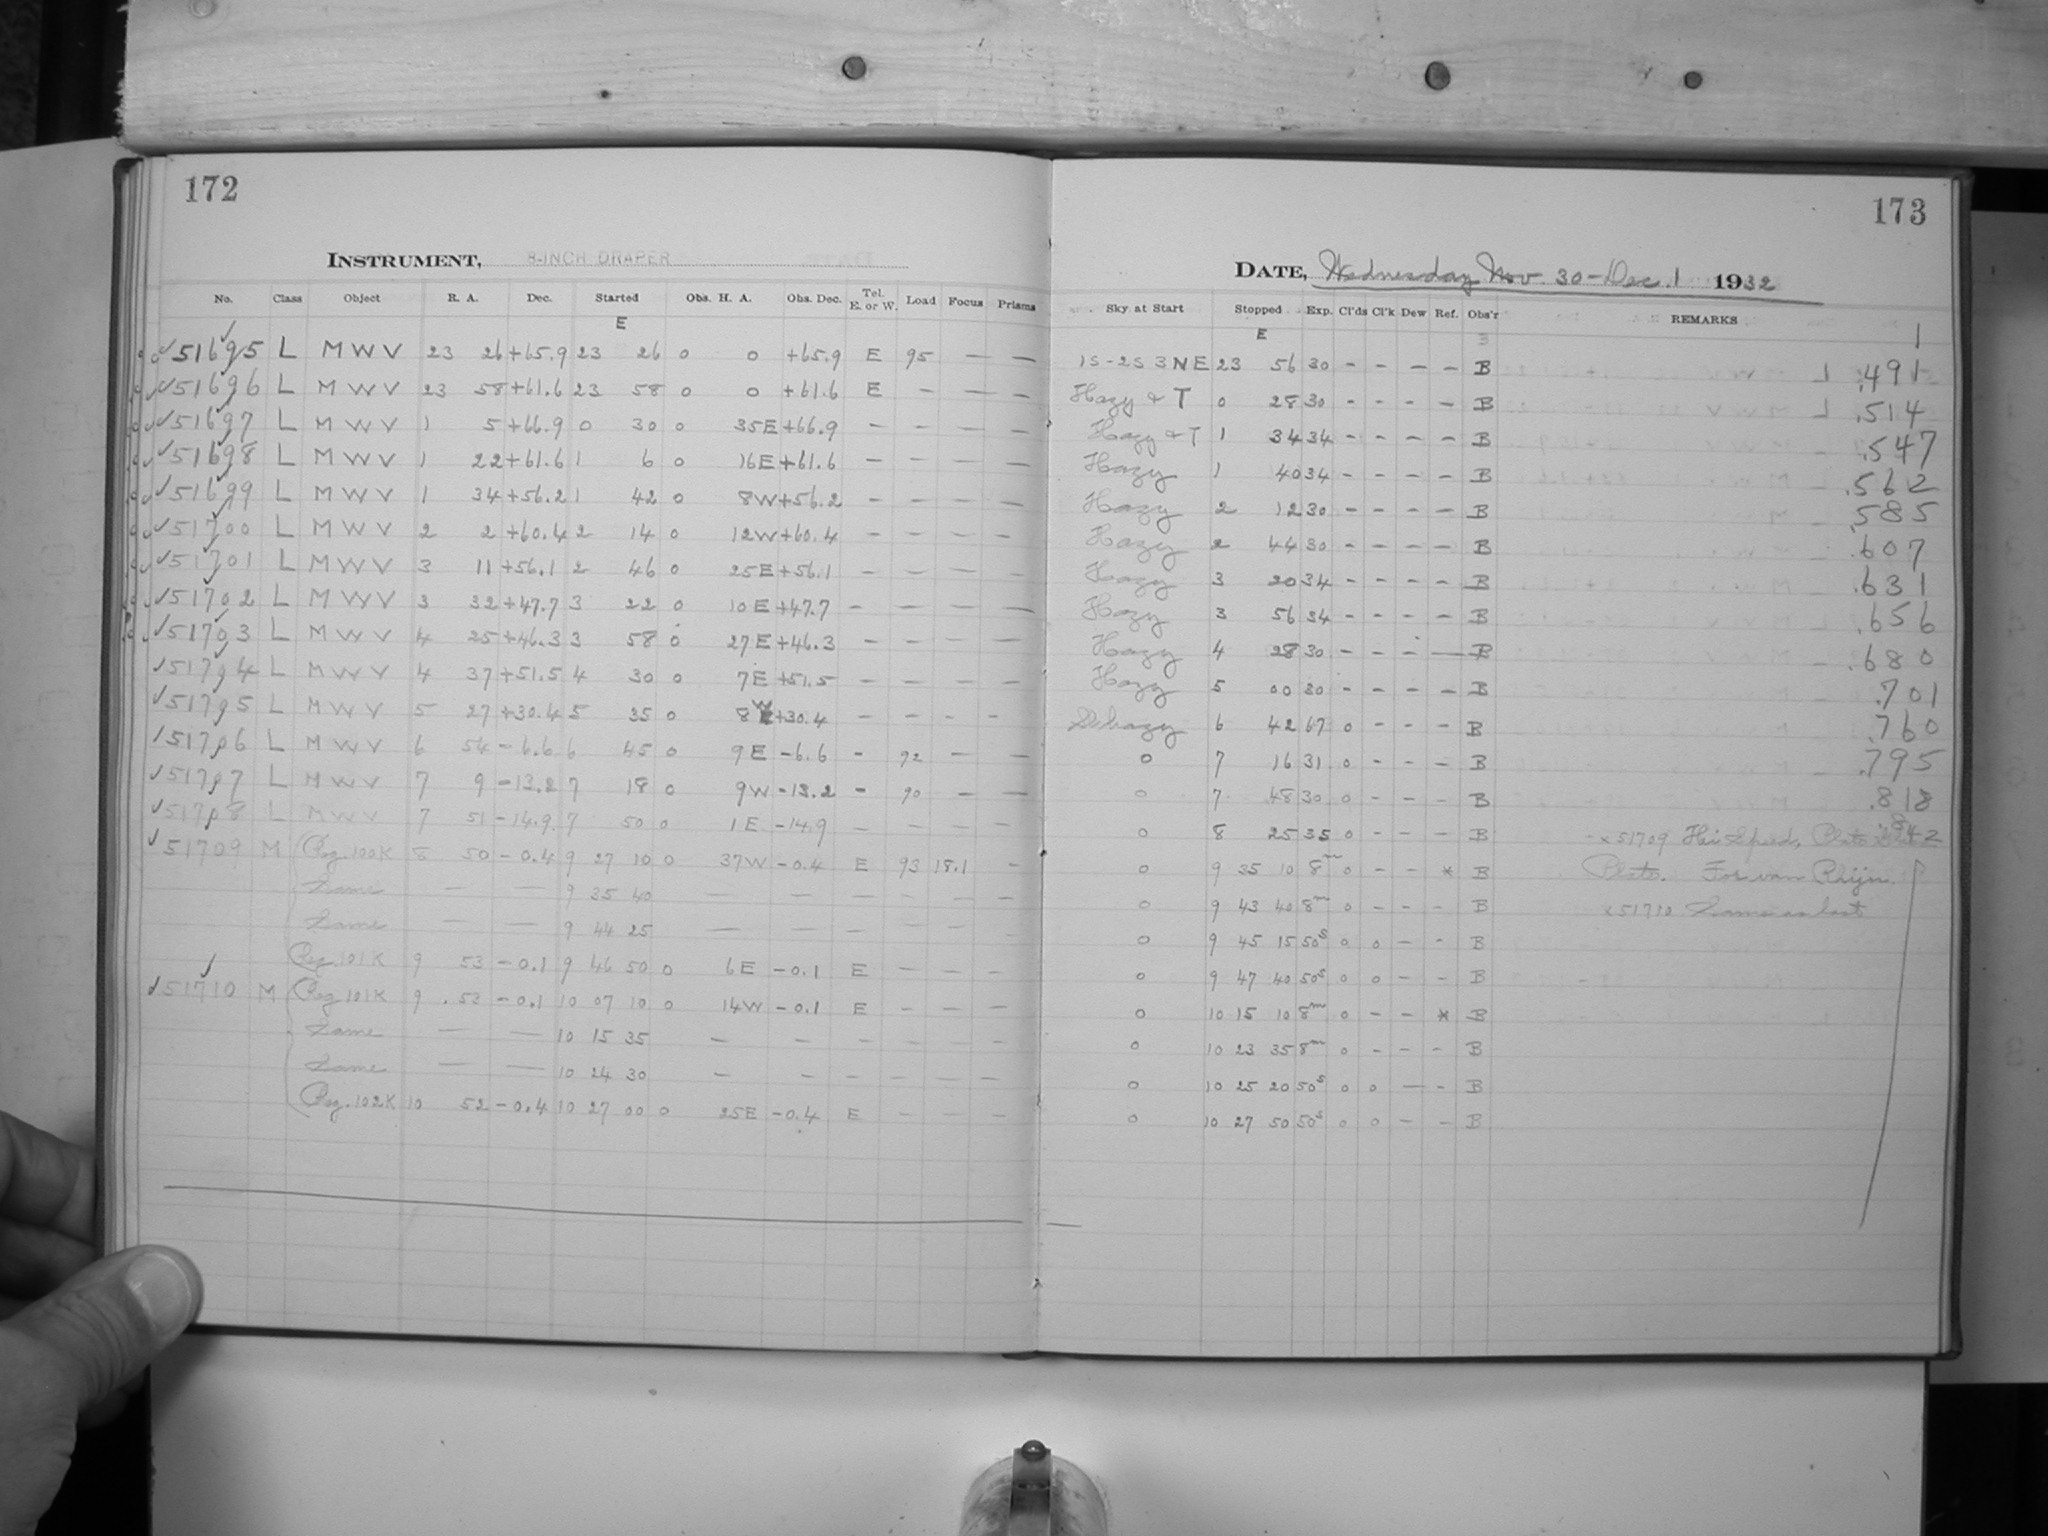 172
INSTRUMENT, 8-INCH DRAPER
No. Class Object R. A. Dec. Started Obs. H. A. Obs. Dec. Tel. E. or W. Load Focus Prisms
E
51695 L M W V 23 26 +65.9 23 26 0 0 +65.9 E 95 — —
51696 L M W V 23 58 +61.6 23 58 0 0 +61.6 E - — —
51697 L M W V 1 5 +66.9 0 30 0 35E +66.9 — — — —
51698 L M W V 1 22 +61.6 1 6 0 16E +61.6 — — — —
51699 L M W V 1 34 +56.2 1 42 0 8W +56.2 — — — —
51700 L M W V 2 2 +60.4 2 14 0 12W +60.4 — — — —
51701 L M W V 3 11 +56.1 2 46 0 25E +56.1 — — — —
51702 L M W V 3 32 +47.7 3 22 0 10E +47.7 — — — —
51703 L M W V 4 25 +46.3 3 58 0 27E +46.3 — — — —
51704 L M W V 4 37 +51.5 4 30 0 7E +51.5 — — — —
51705 L M W V 5 27 +30.4 5 35 0 8W +30.4 — — — —
51706 L M W V 6 54 -6.6 6 45 0 9E -6.6 - 92 — —
51707 L M W V 7 9 -13.2 7 18 0 9W -13.2 - 90 — —
51708 L M W V 7 51 -14.9 7 50 0 1E -14.9 — — — —
51709 M Reg. 100K 8 50 -0.4 9 27 10 0 37W -0.4 E 93 18.1 -
Same — — 9 35 40 — — — — — —
Same — — 9 44 25 — — — — — —
Reg. 101K 9 53 -0.1 9 46 50 0 6E -0.1 E — — —
51710 M Reg. 101K 9 53 -0.1 10 07 10 0 14W -0.1 E — — —
Same — — 10 15 35 — — — — — —
Same — — 10 24 30 — — — — — —
Reg. 102K 10 52 -0.4 10 27 00 0 25E -0.4 E — — —
173
DATE, Wednesday Nov. 30 - Dec. 1 1932
Sky at Start Stopped Exp. Cl'ds Cl'k Dew Ref. Obs'r REMARKS
E 1
1S-2S 3 NE 23 56 30 - - - - B .491
Hazy & T 0 28 30 - - - - B .514
Hazy & T 1 34 34 - - - - B .547
Hazy 1 40 34 - - - - B .562
Hazy 2 12 30 - - - - B .585
Hazy 2 44 30 - - - - B .607
Hazy 3 20 34 - - - - B .631
Hazy 3 56 34 - - - - B .656
Hazy 4 28 30 - - - — B .680
Hazy 5 00 30 - - - - B .701
Sl hazy 6 42 67 0 - - - B .760
0 7 16 31 0 - - - B .795
0 7 48 30 0 - - - B .818
0 8 25 35 0 - - - B x 51709 Hi Speed,
0 9 35 10 8m 0 - - * B Plate. For van Rhijn.
0 9 43 40 8m 0 - - - B x 51710 Same as last
0 9 45 15 50s 0 0 - - B
0 9 47 40 50s 0 0 - - B
0 10 15 10 8m 0 - - * B
0 10 23 35 8m 0 - - - B
0 10 25 20 50s 0 0 - - B
0 10 27 50 50s 0 0 - - B